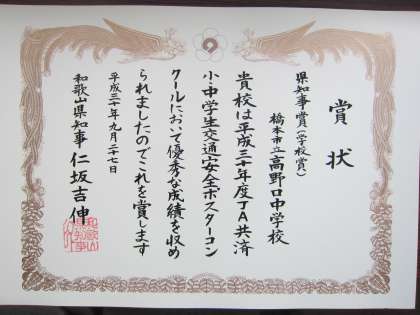 賞状
県知事賞(学校賞)
橋本市立高野口中学校
貴校は平成三十年度JA共済
小・中学生交通安全ポスターコン
クールにおいて優秀な成績を収め
られましたのでこれを賞します
平成三十年九月二十七日
和歌山県知事 仁坂吉伸